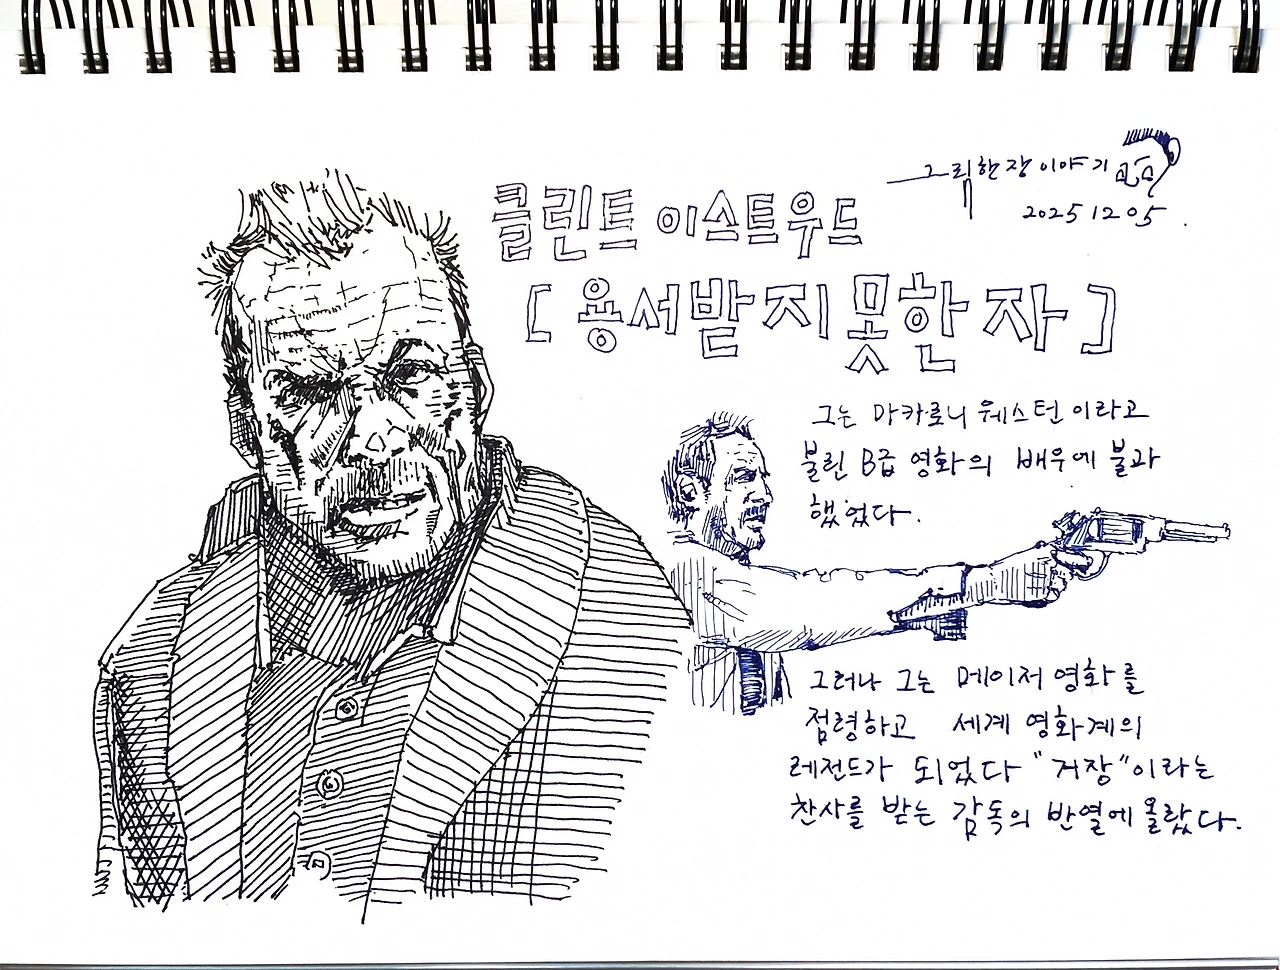 그림한장이야기
2025 12 05.
클린트 이스트우드
[용서받지못한 자]
그는 마카로니 웨스턴이라고
불린 B급 영화의 배우에 불과
했었다.
그러나 그는 메이저 영화를
점령하고 세계 영화계의
레전드가 되었다 "거장"이라는
찬사를 받는 감독의 반열에 올랐다.